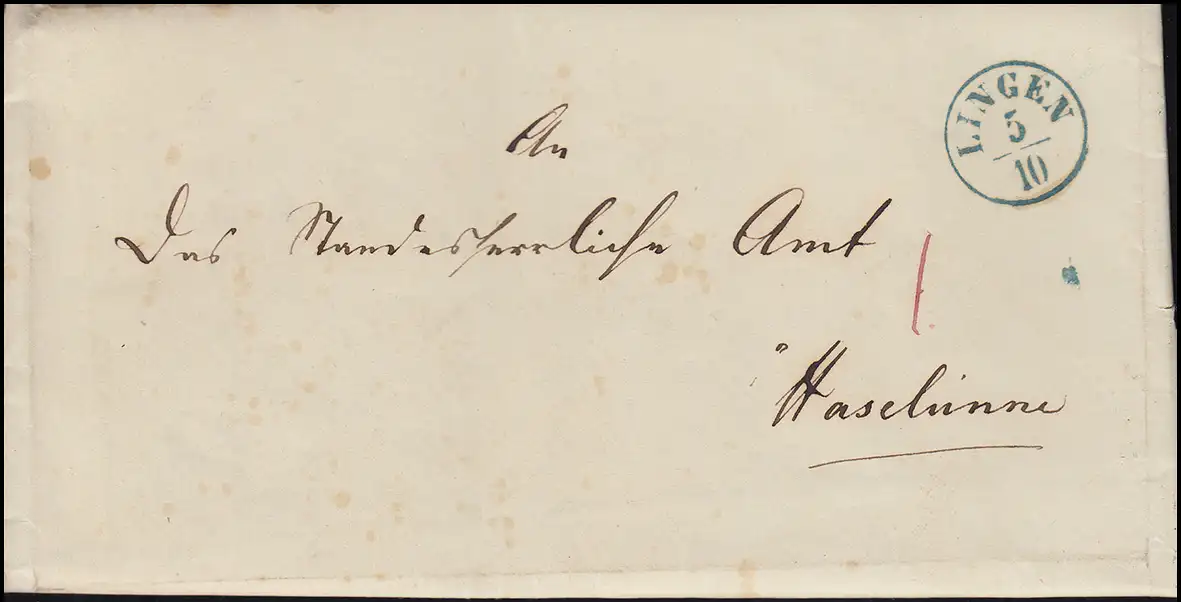 LINGEN
5
10
An
Das Standesherrliche Amt
Haselünne